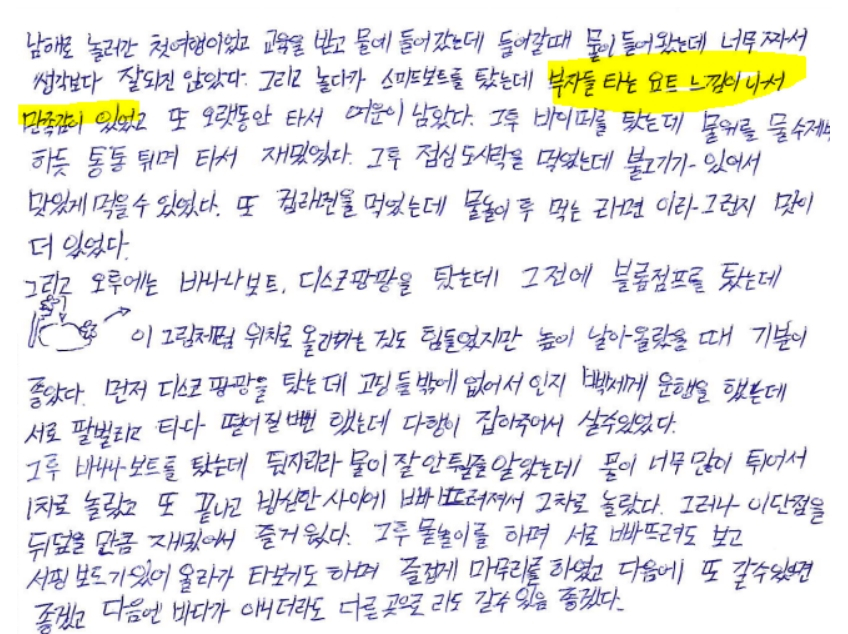 남해로 놀러간 첫여행이었고 교육을 받고 물에 들어갔는데 들어갈때 물이 들어왔는데 너무 짜서
생각보다 잘되진 않았다. 그리고 놀다가 스피드보트를 탔는데 부자들 타는 요트 느낌이 나서
만족감이 있었고 또 오랫동안 타서 여운이 남았다. 그후 바이퍼를 탔는데 물위를 물수제비
하듯 통통 튀며 타서 재밌었다. 그후 점심 도시락을 먹었는데 불고기가 있어서
맛있게 먹을수 있었다. 또 컵라면을 먹었는데 물놀이 후 먹는 라면 이라 그런지 맛이
더 있었다.
그리고 오후에는 바나나보트, 디스코팡팡을 탔는데 그전에 블롭점프를 탔는데
이 그림처럼 위치로 올라가는 것도 힘들었지만 높이 날아올랐을 때 기분이
좋았다. 먼저 디스코팡팡을 탔는데 고딩들밖에 없어서 인지 빡세게 운행을 했는데
서로 팔벌리고 타다 떨어질뻔 했는데 다행이 잡아주어서 살수있었다.
그후 바나나보트를 탔는데 뒷자리라 물이 잘 안튈줄 알았는데 물이 너무 많이 튀어서
1차로 놀랐고 또 끝나고 방심한 사이에 빠뜨려져서 2차로 놀랐다. 그러나 이단점을
뒤덮을 만큼 재밌어서 즐거웠다. 그후 물놀이를 하며 서로 빠뜨려도 보고
서핑 보드가 있어 올라가 타보기도 하며 즐겁게 마무리를 하였고 다음에 또 갈수있으면
좋겠고 다음엔 바다가 아니더라도 다른 곳으로 라도 갈수 있음 좋겠다.